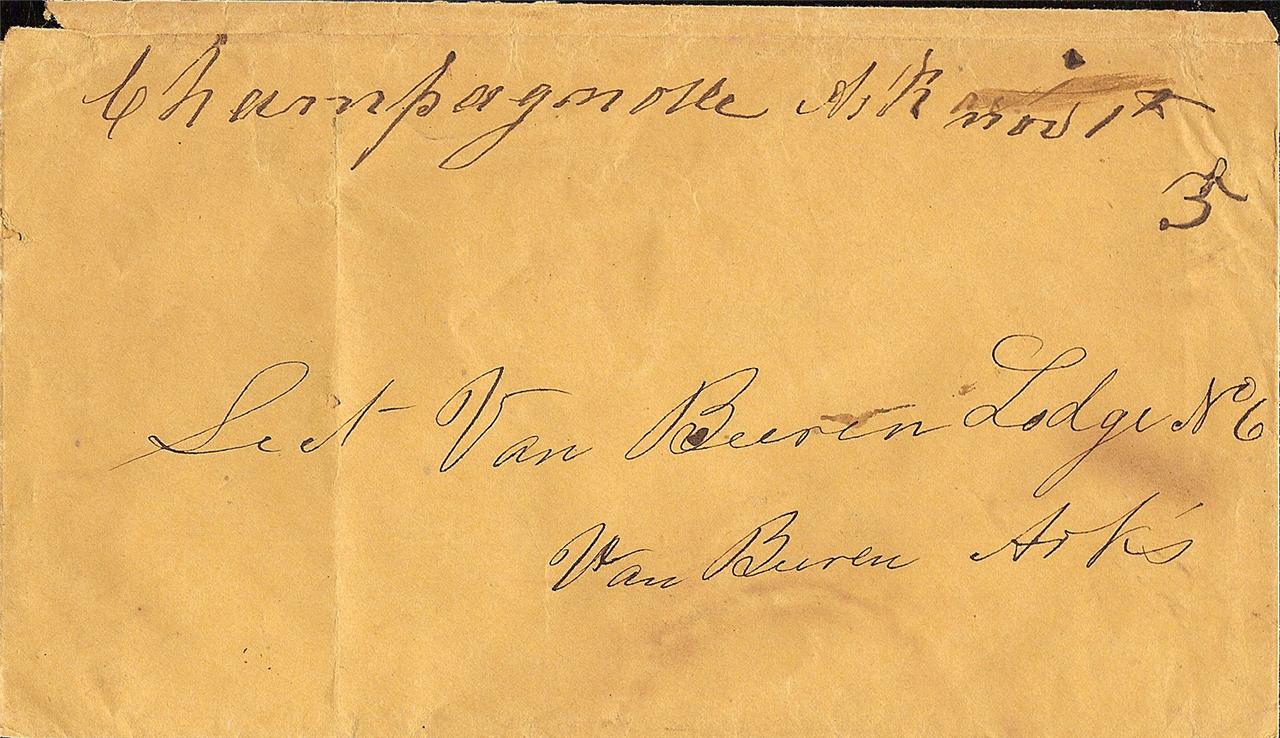 Champagnolle Ark Nov 1st
3
Sect Van Buren Lodge No 6
Van Buren Arks